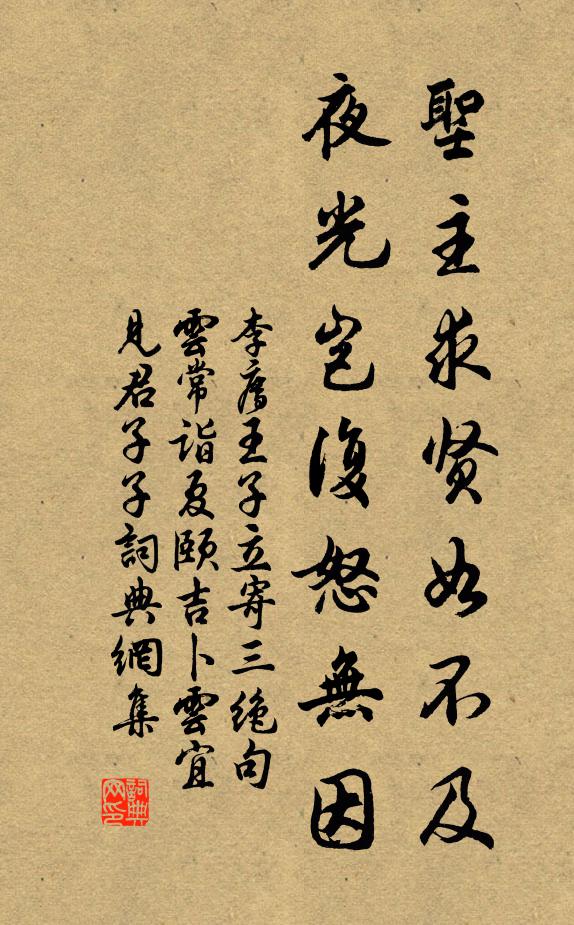 聖主求贤如不及
夜光岂復怒無因
李廌王子立寄三绝句
雲常詣夏頤吉卜雲宜
見君子子詞典網集
詞典网印